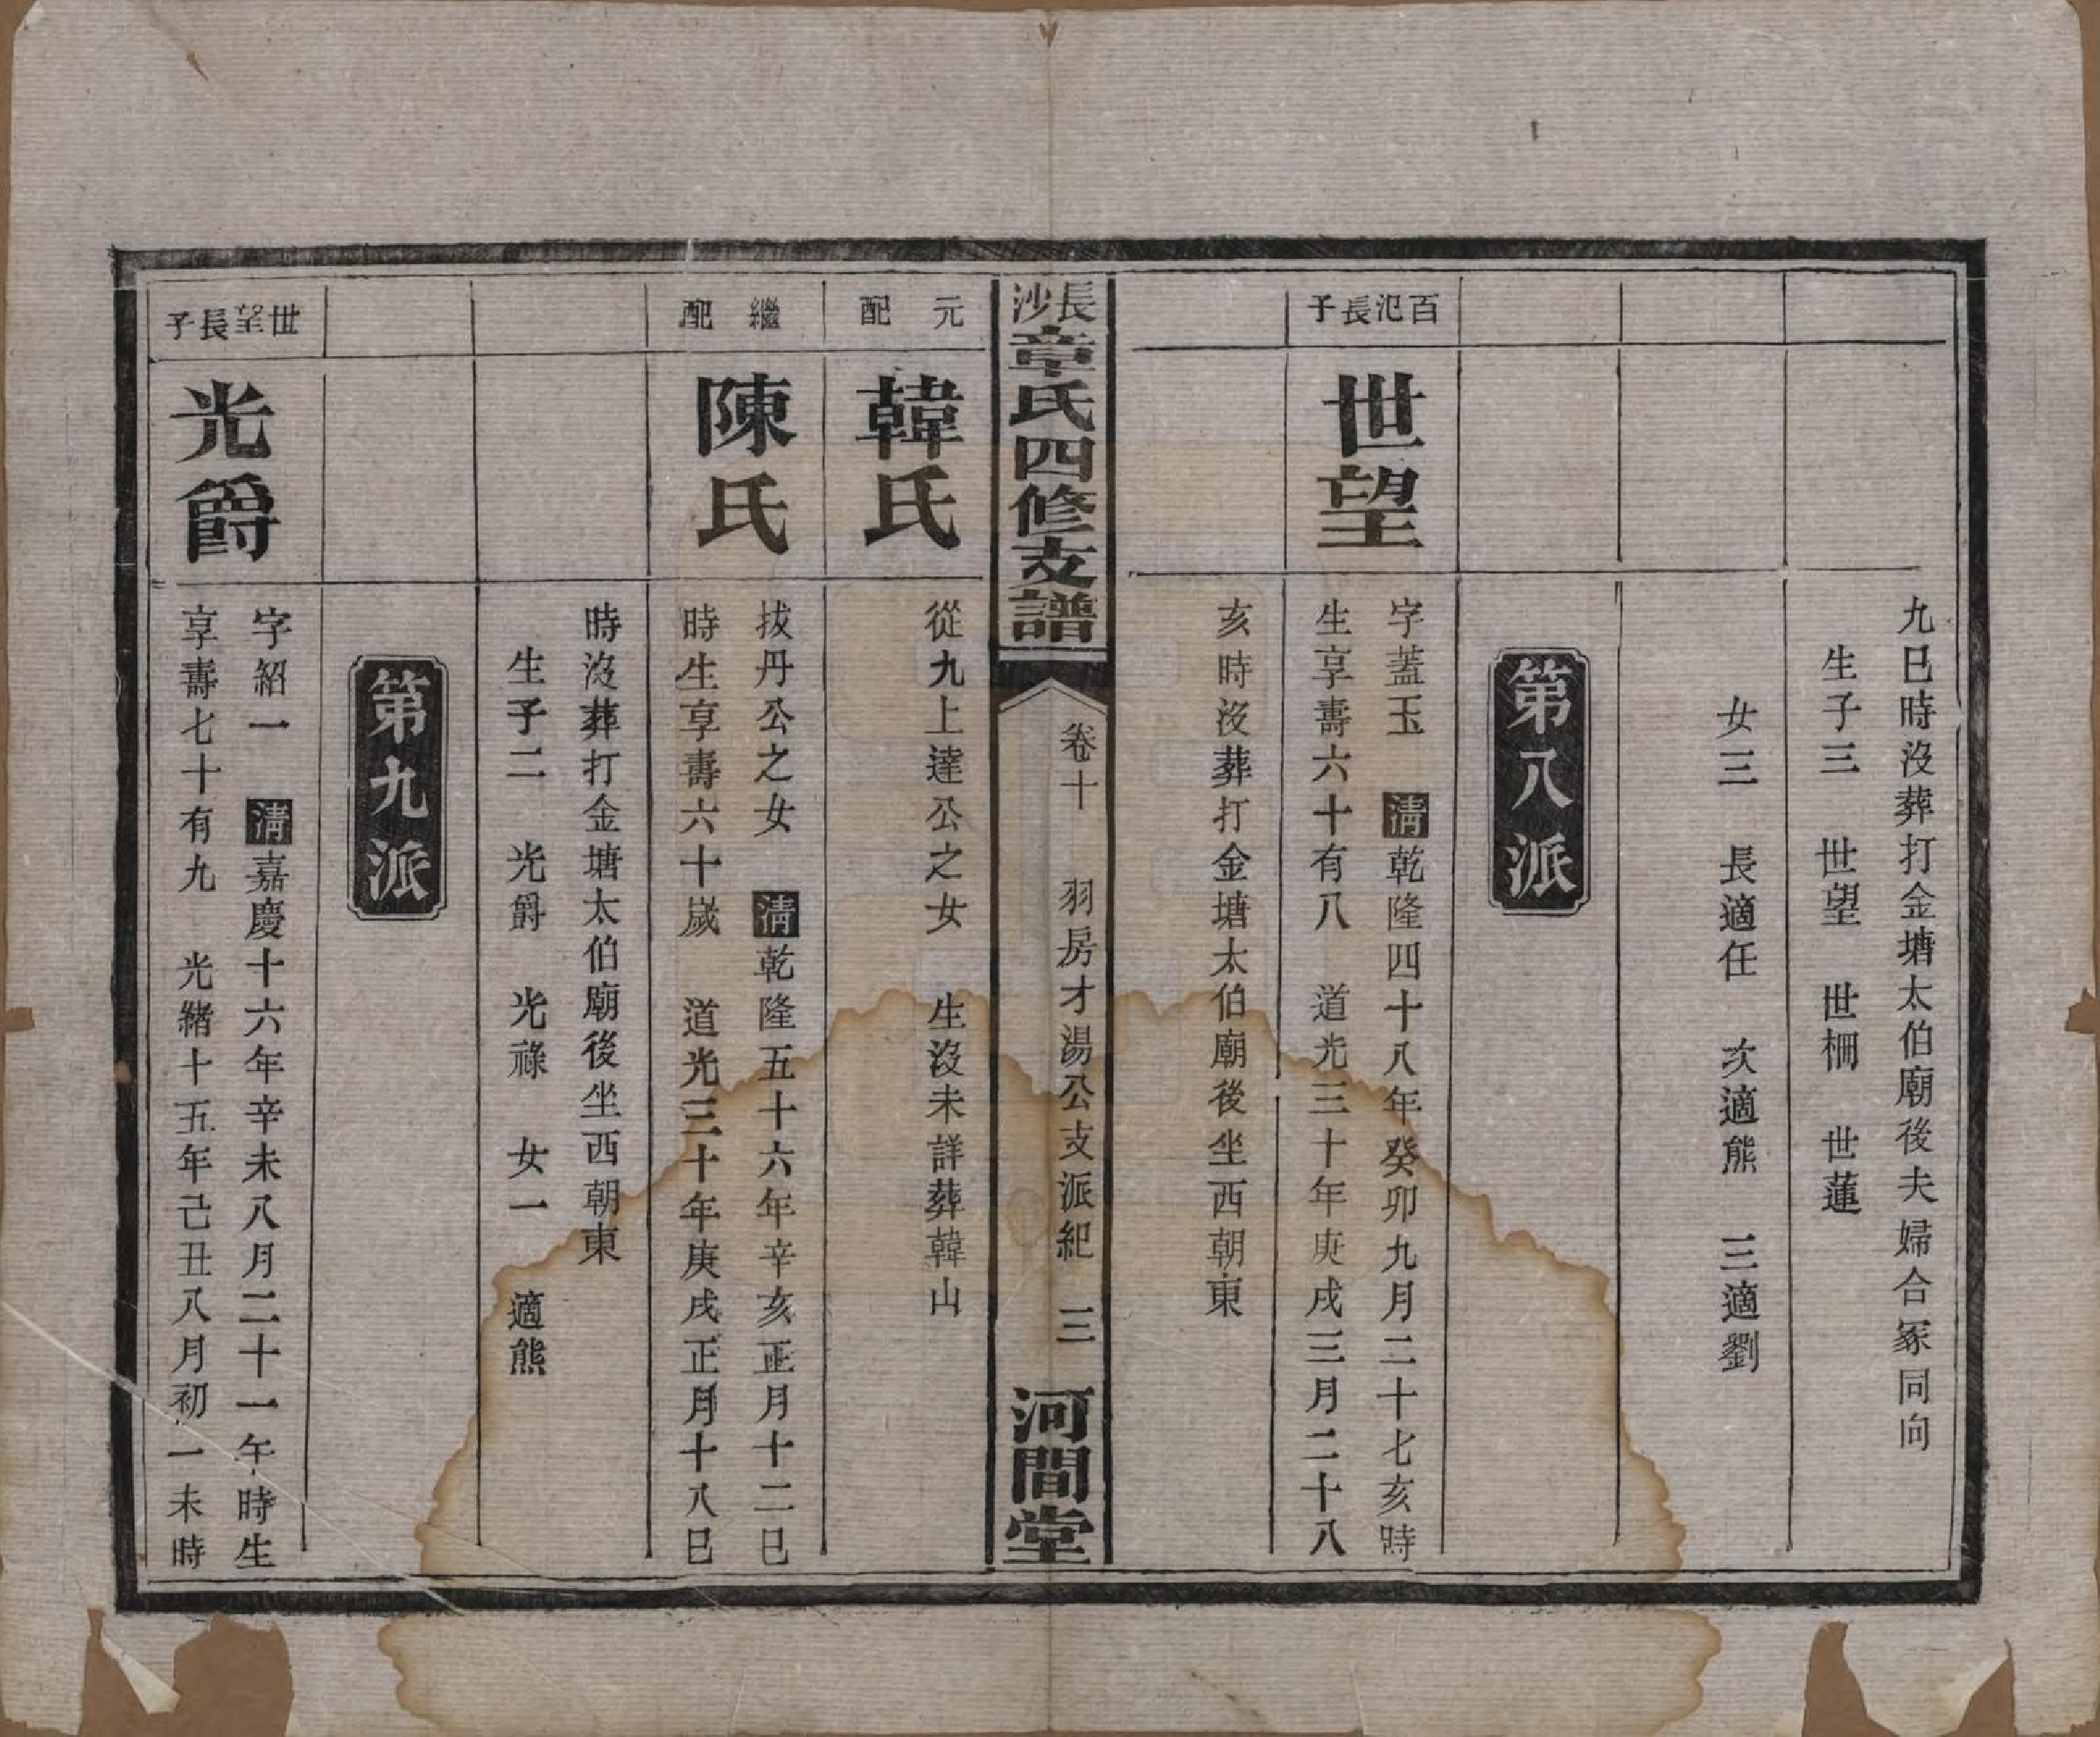 九巳時沒葬打金塘太伯廟後夫婦合冢同向
生子三　世望　世柵　世蓮
女三　長適任　次適熊　三適劉
第八派
百氾長子
世望
字蓋玉　清乾隆四十八年癸卯九月二十七亥時
生享壽六十有八　道光三十年庚戌三月二十八
亥時沒葬打金塘太伯廟後坐西朝東
長沙章氏四修支譜
卷十　羽房才湯公支派紀　三
河間堂
元配
韓氏
從九上達公之女　生沒未詳葬韓山
繼配
陳氏
拔丹公之女　清乾隆五十六年辛亥正月十二巳
時生享壽六十歲　道光三十年庚戌正月十八巳
時沒葬打金塘太伯廟後坐西朝東
生子二　光爵　光祿　女一　適熊
第九派
世望長子
光爵
字紹一　清嘉慶十六年辛未八月二十一午時生
享壽七十有九　光緒十五年己丑八月初一未時